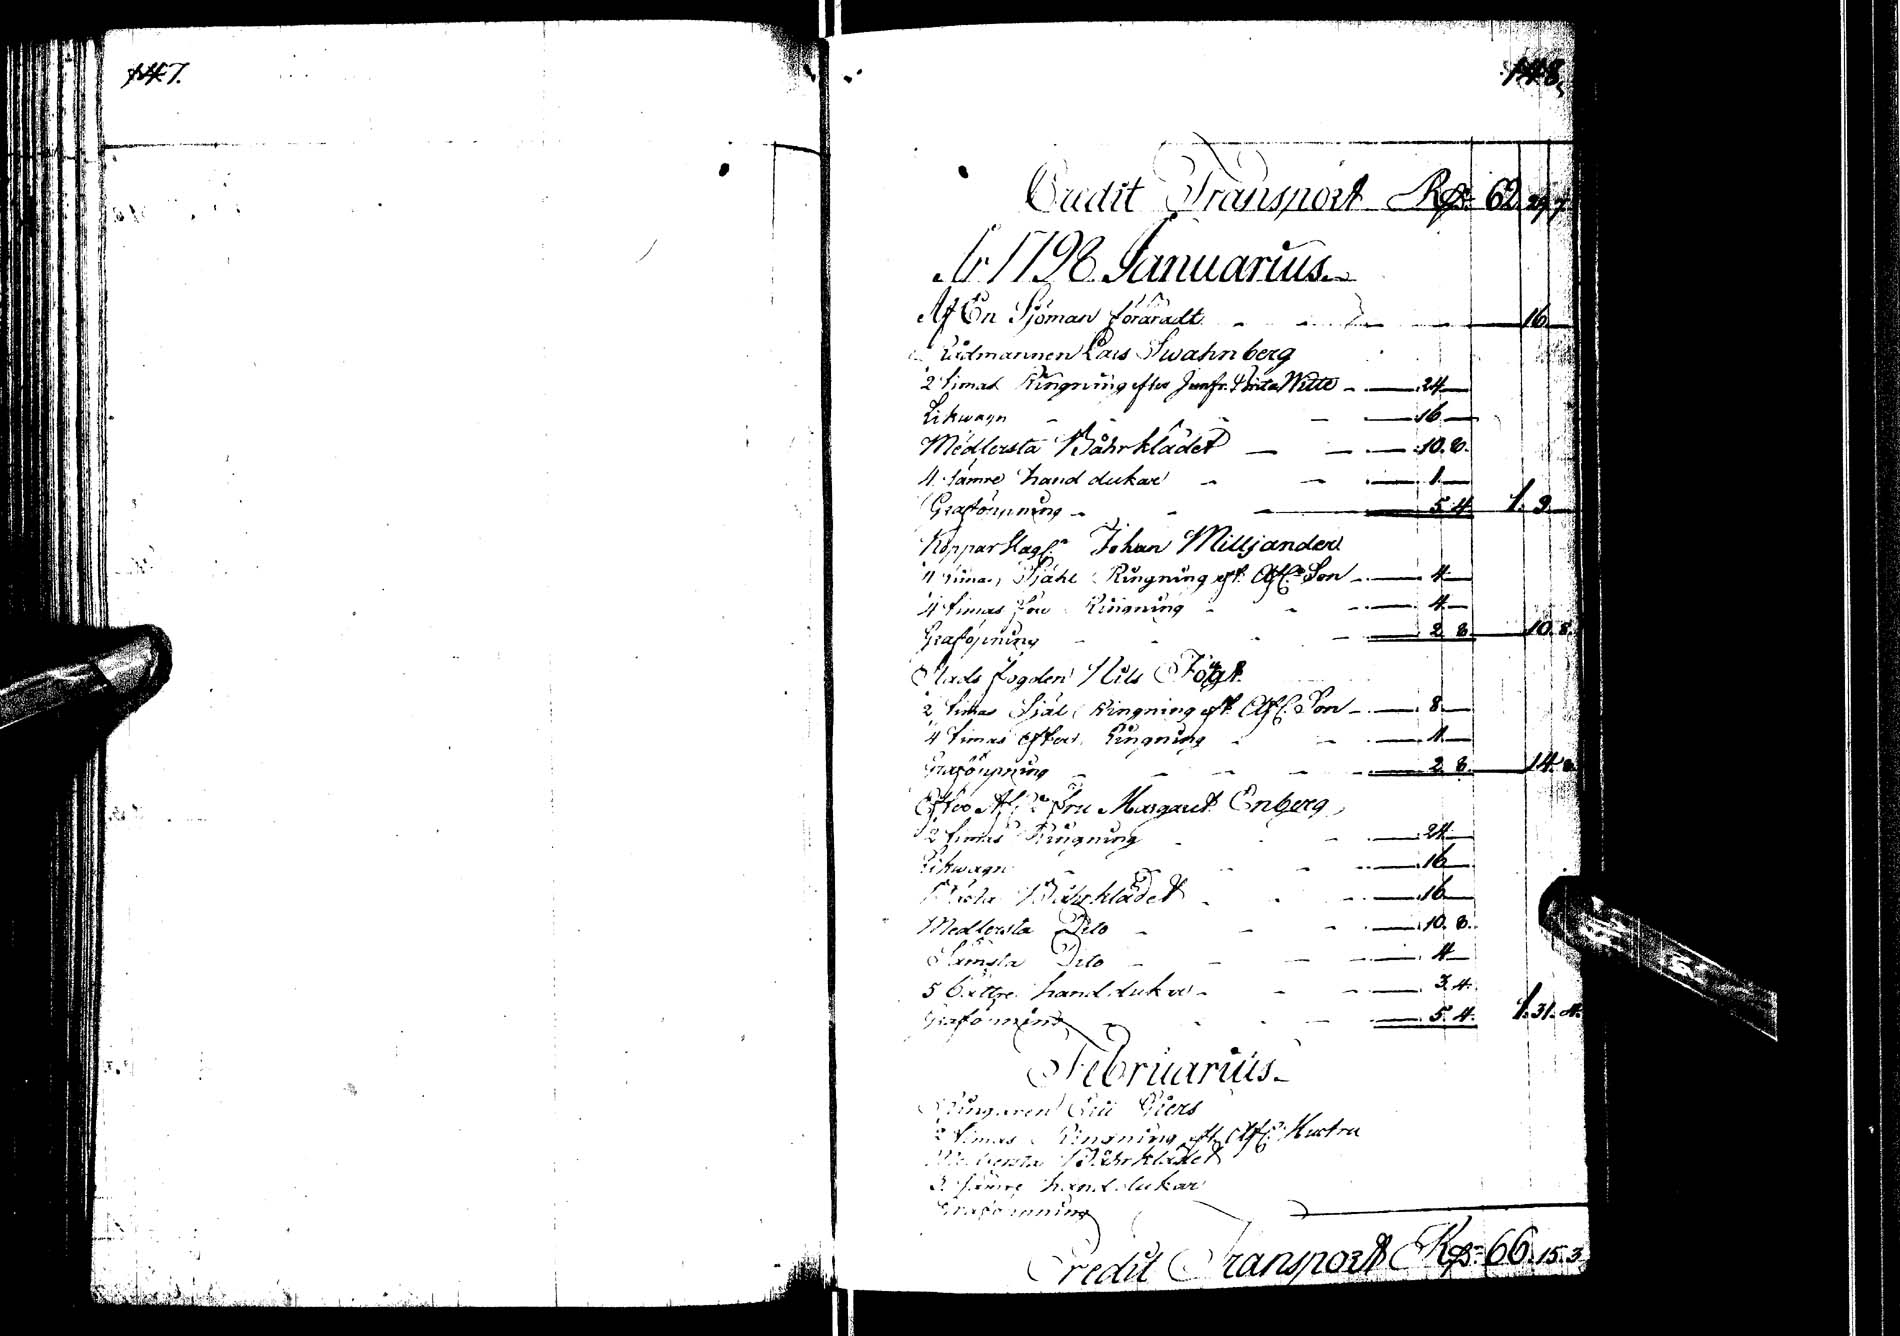 147.
148.
Credit Transport Rd: 62. 29. 7
År 1798. Januarius.
Af En Sjöman föräradt 16
Rådmannen Lars Swahnberg
2 timas Ringning efter Junfr. Brita Witte 24
Likwagn 16
Medlersta Bårklädet 10. 8.
4 sämre handdukar 1
Graföpning 5. 4. 1. 9.
Kopparslag. Johan Milljander
4 timas Själe Ringning eft. Afl. Son 4
4 timas Ringning 4
Graföpning 2. 8 10. 8.
Stads fogden Nils
2 timas Själ Ringning eft. Afl. Son 8
4 timas efter Ringning 4
Graföpning 2. 8. 14. 8
Efter Afl. Fru Margaret Enberg
2 timas Ringning 24
Likwagn 16
Bästa Bårklädet 16
Medlersta Dito 10. 8.
Sämsta Dito 4
5 bättre handdukar 3. 4.
Graföpning 5. 4. 1. 31. 4.
Februarius.
2 timas Ringning eft. Afl. Hustru
Medlersta Bårklädet
3 sämre handdukar
Graföpning
Credit Transport Rd: 66. 15. 3